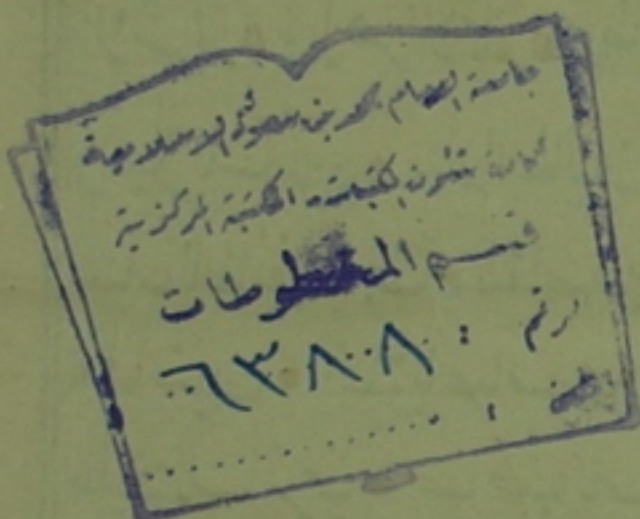 جامعة الإمام محمد بن سعود الإسلامية
عمادة شئون المكتبات المكتبة المركزية
قسم المخطوطات
رقم : ٦٣٨٨
: